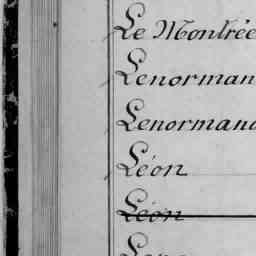 Le Montrée
Lenorman
Lenormand
Léon
Léon